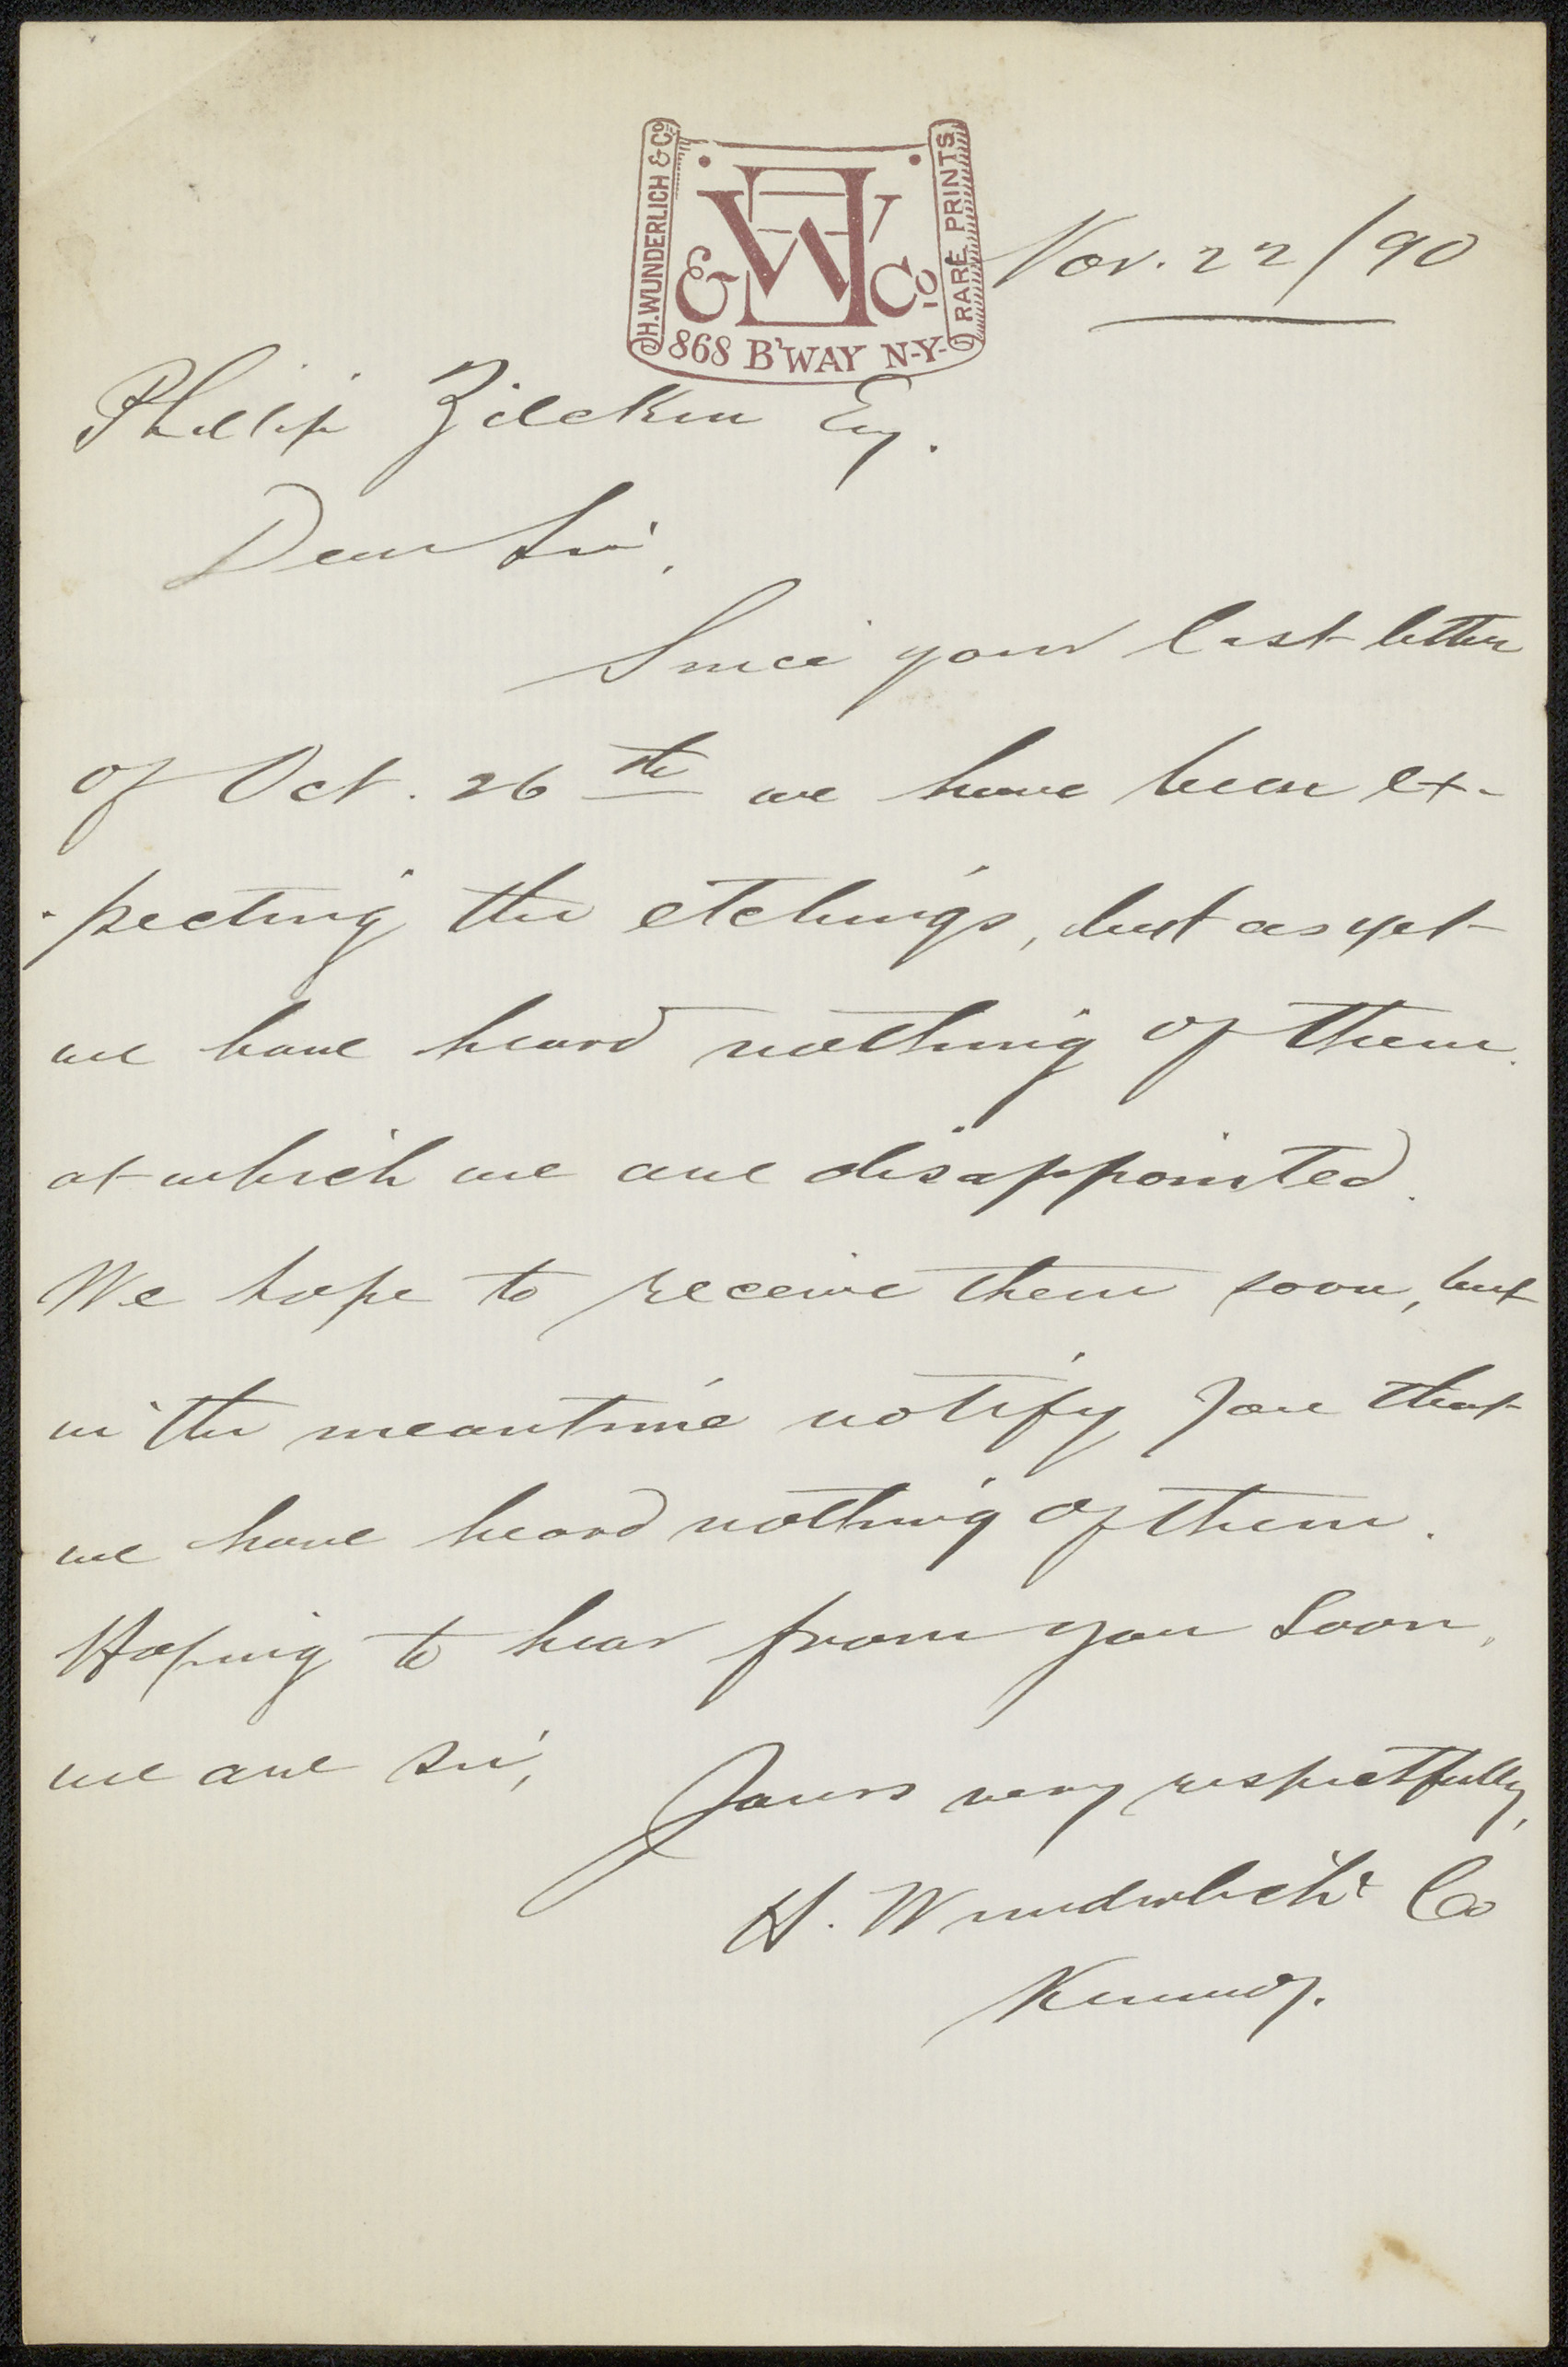 H. WUNDERLICH & Co.
RARE PRINTS
HW
& Co
868 B'WAY N-Y-
Nov. 22/90
Phillip Zilcken Esq.
Dear Sir,
Since your last letter
of Oct. 26th we have been ex-
-pecting the etchings, but as yet
we have heard nothing of them.
at which we are disappointed.
We hope to receive them soon, but
in the meantime notify you that
we have heard nothing of them.
Hoping to hear from you soon,
we are sir,
Yours very respectfully,
H. Wunderlich & Co
Kennedy.